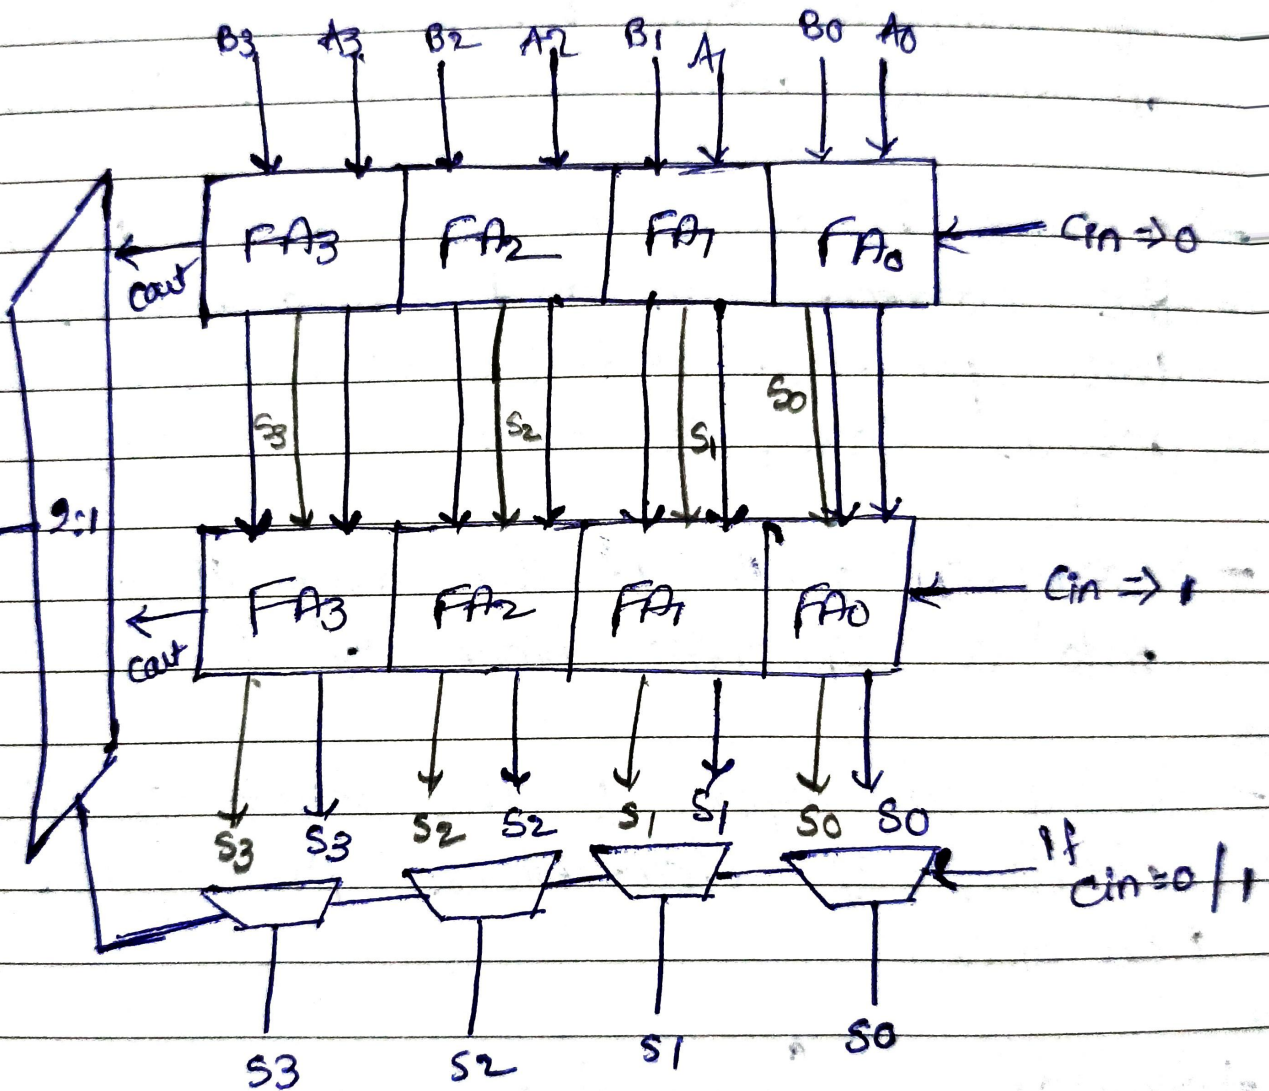 B3 A3 B2 A2 B1 A1 B0 A0
FA3 FA2 FA1 FA0 Cin => 0
cout
S3 S2 S1 S0
2:1
FA3 FA2 FA1 FA0 Cin => 1
cout
S3 S3 S2 S2 S1 S1 S0 S0
If
Cin=0/1
S3 S2 S1 S0